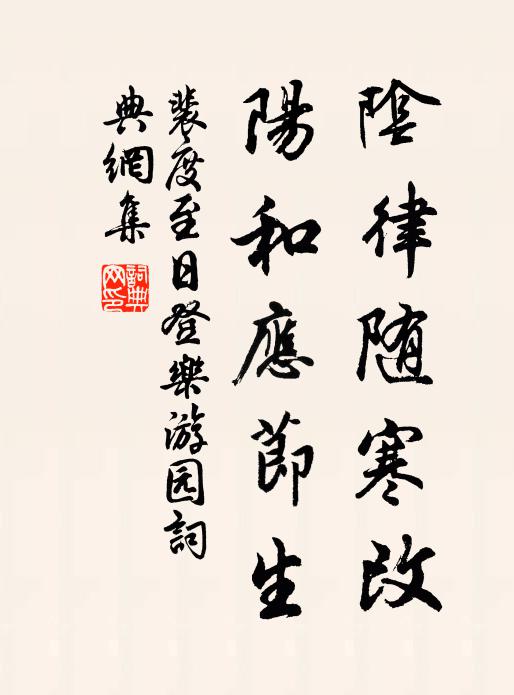 陰律随寒改
陽和應節生
裴度至日登樂游园詞
典網集
詞典網印